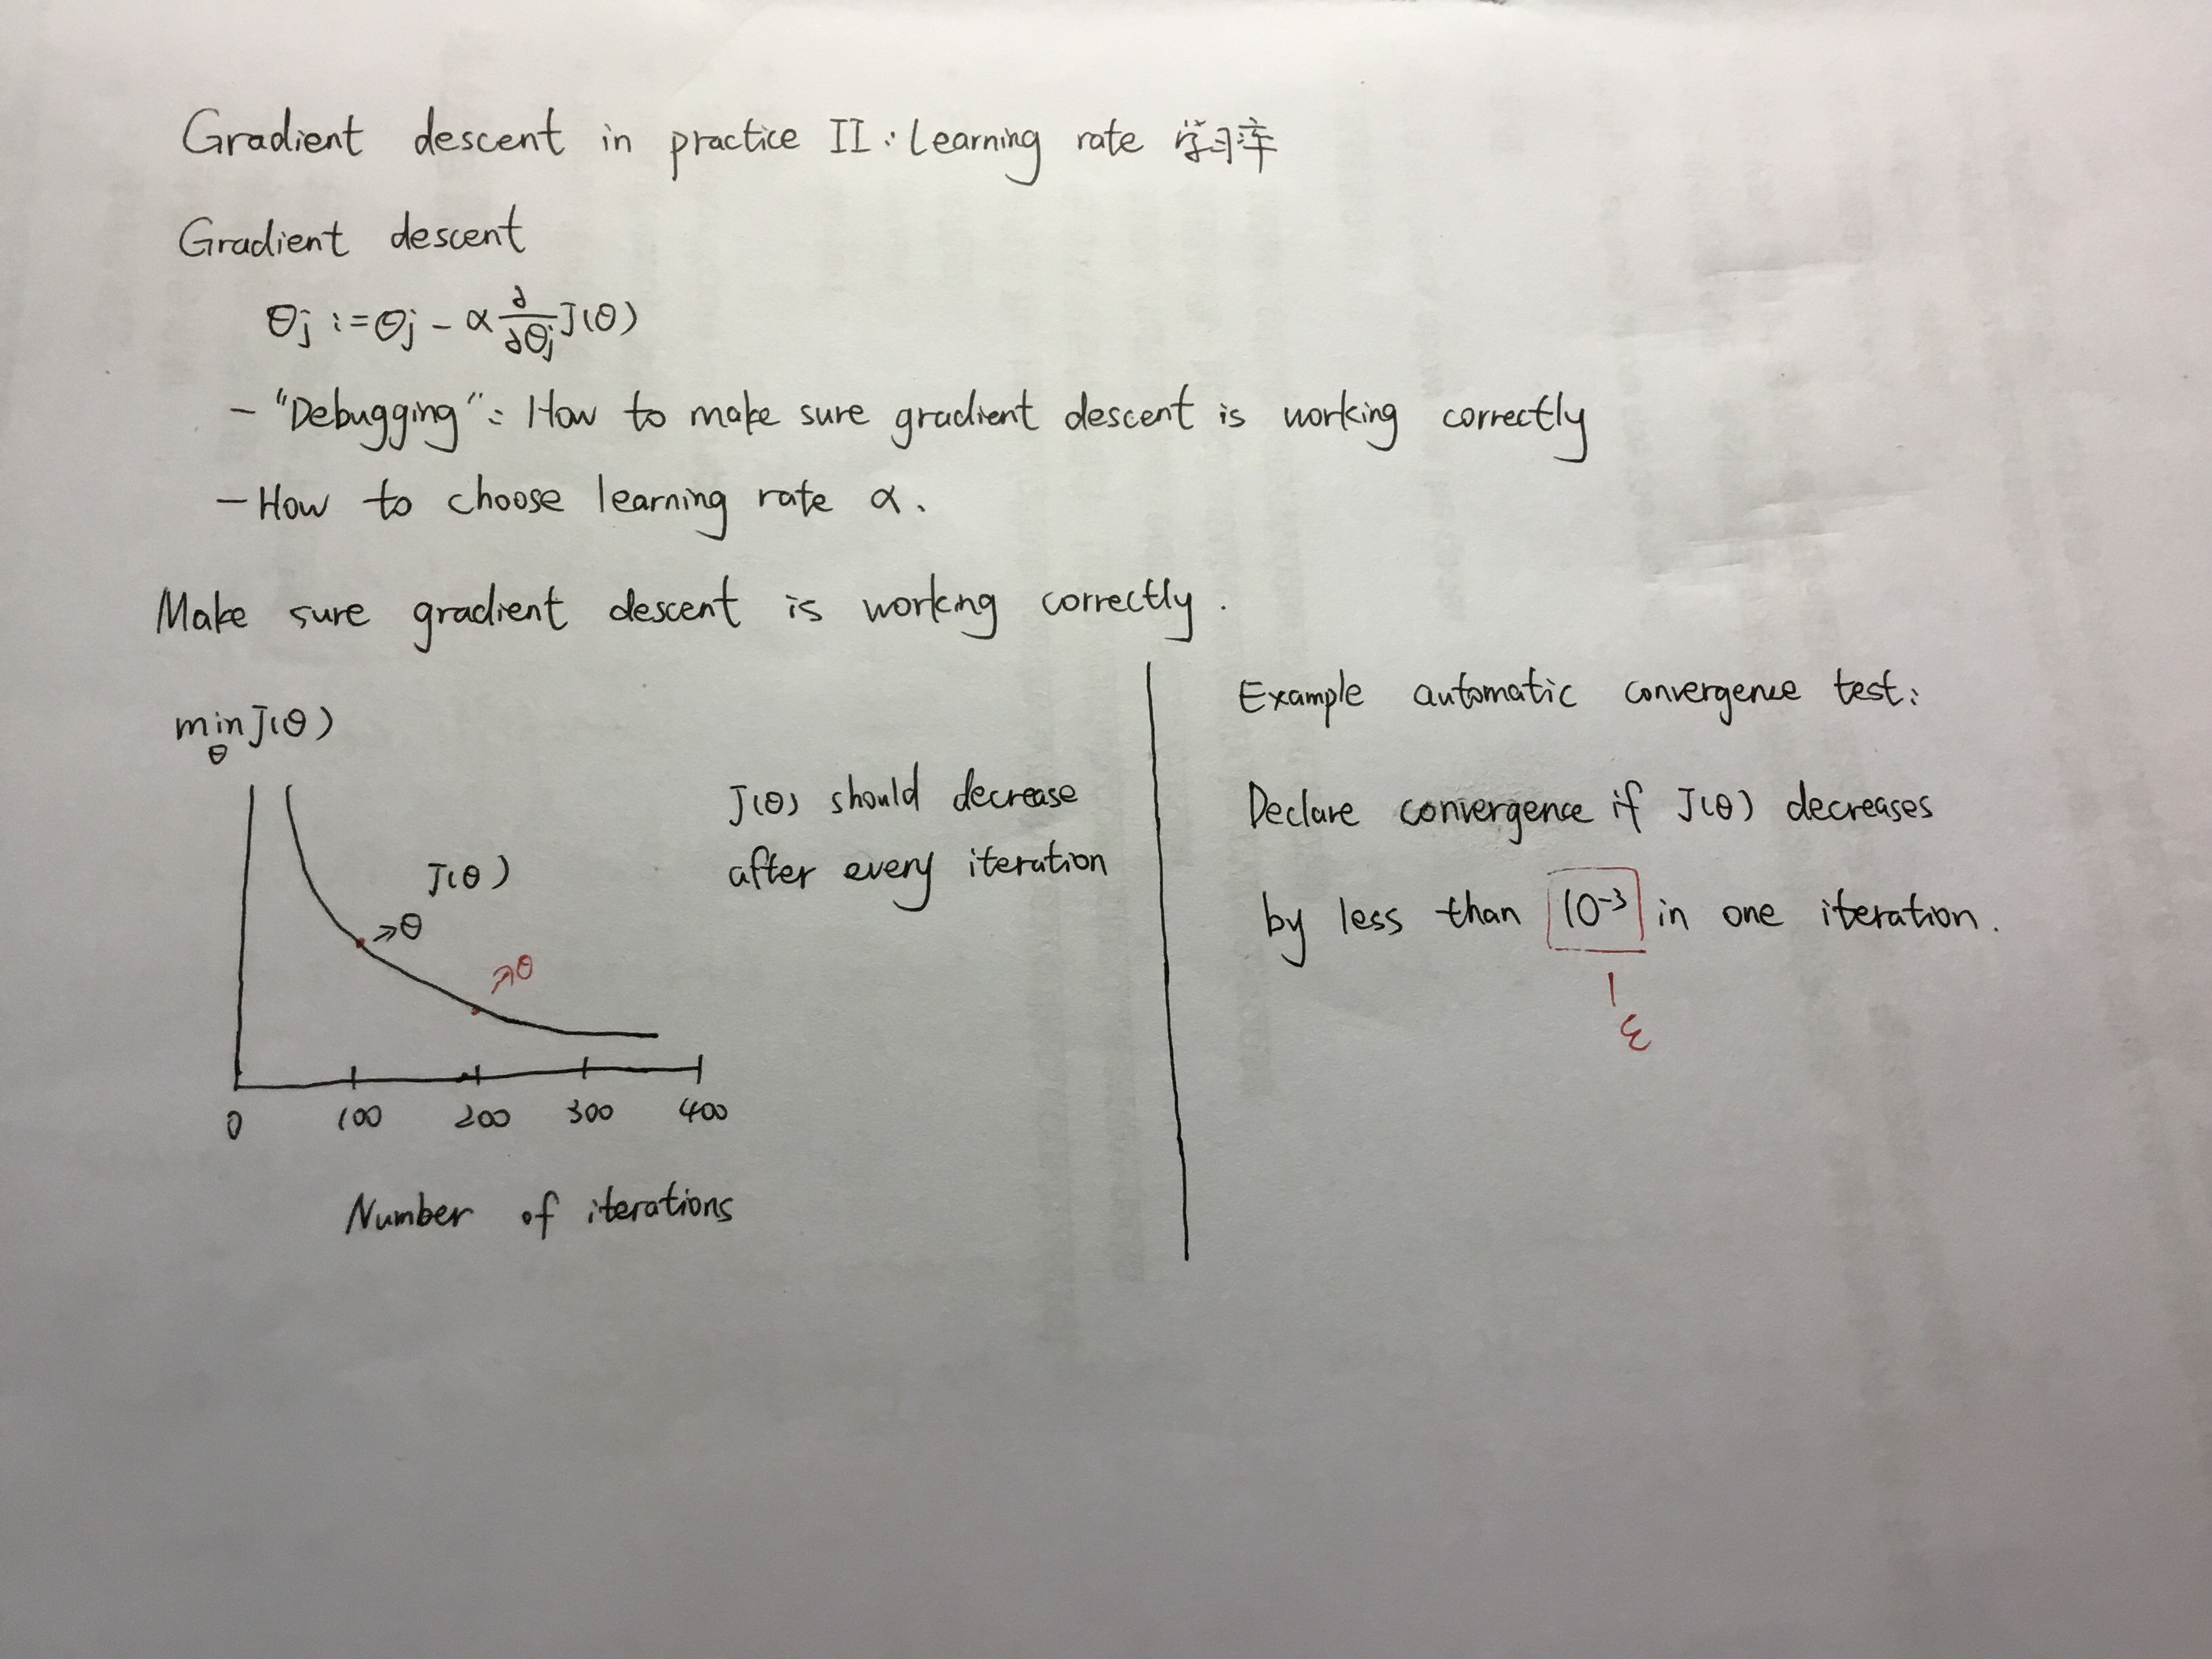 Gradient descent in practice II: Learning rate 学习率
Gradient descent
θj := θj - α ∂/∂θj J(θ)
- "Debugging": How to make sure gradient descent is working correctly
- How to choose learning rate α.
Make sure gradient descent is working correctly.
min J(θ)
θ
J(θ)
θ
θ
0 100 200 300 400
Number of iterations
J(θ) should decrease
after every iteration
Example automatic convergence test:
Declare convergence if J(θ) decreases
by less than 10⁻³ in one iteration.
ε